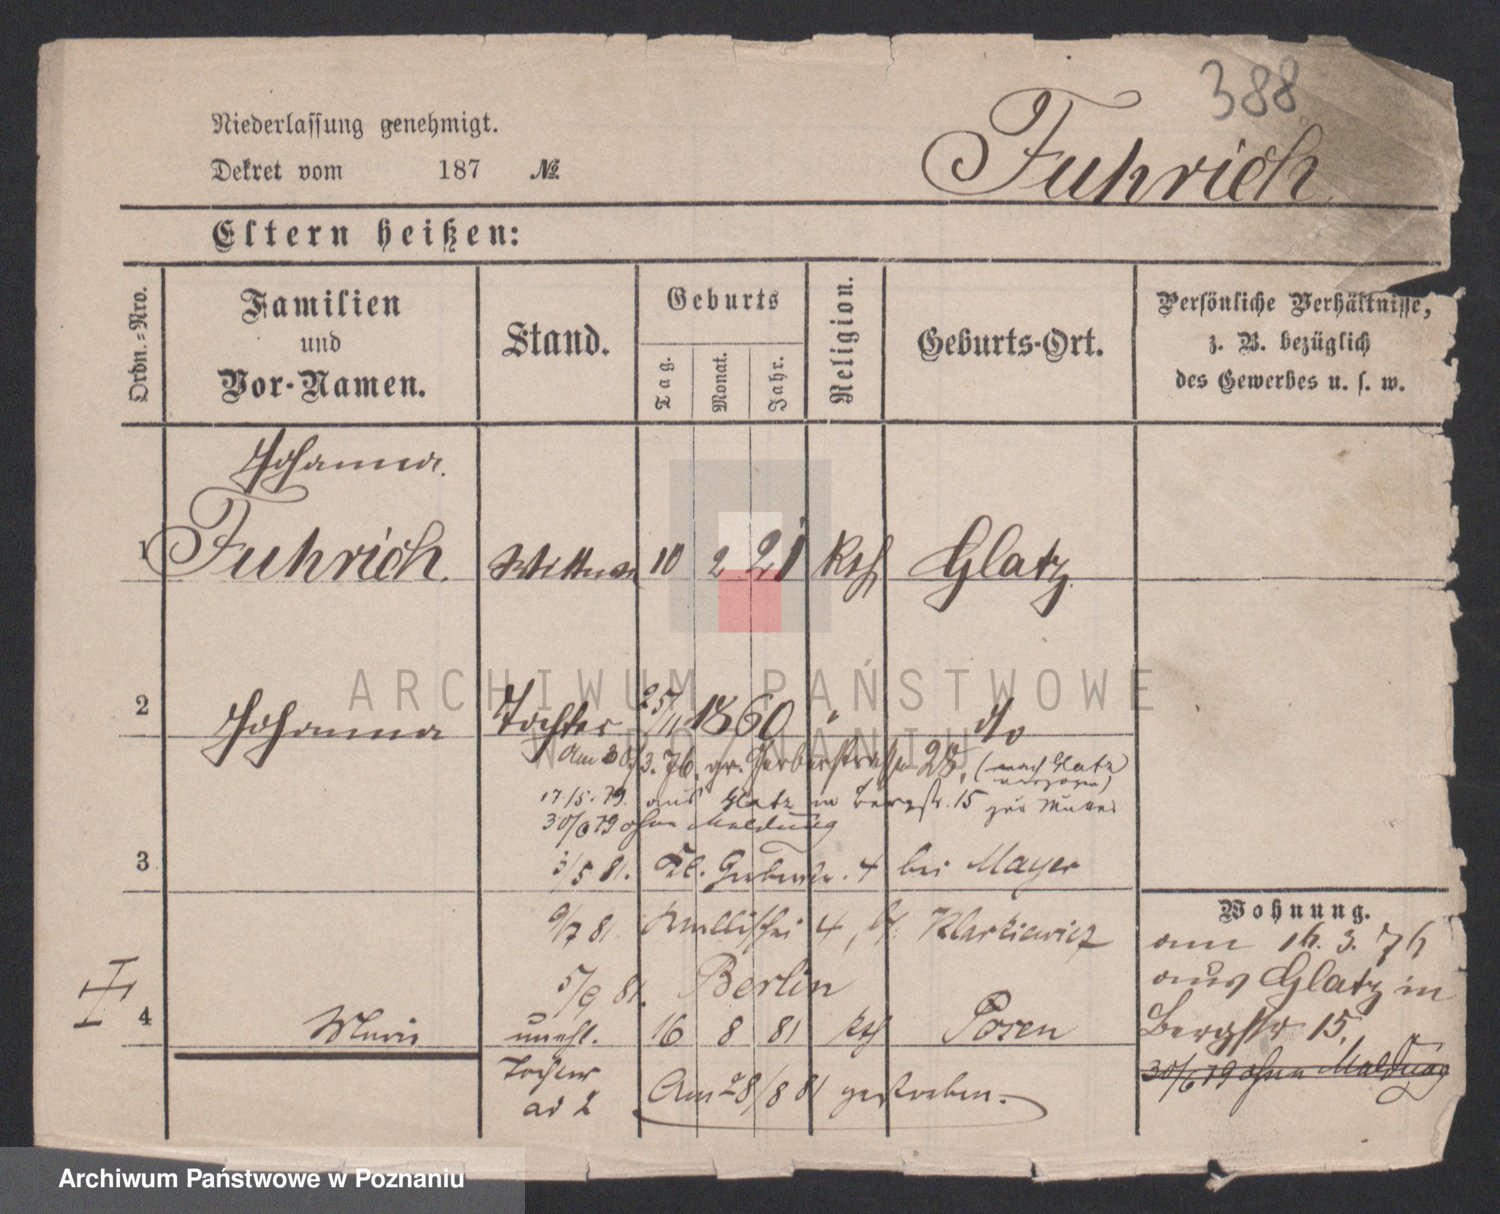 388
Niederlassung genehmigt.
Dekret vom 187 №
Fuhrich
Eltern heißen:
Ordn.-Nro.
Familien
und
Vor-Namen.
Stand.
Geburts
Tag.
Monat.
Jahr.
Religion.
Geburts-Ort.
Persönliche Verhältnisse,
z. B. bezüglich
des Gewerbes u. s. w.
Johanna
1 Fuhrich. Wittwe 10 2 21 kth Glatz
2 Johanna Tochter 25/11 1860 " do
Am 30/3. 76. gr. Gerberstraße 28, (nach Glatz
verzogen)
17/5. 79. aus Glatz in Bergstr. 15 zur Mutter
30/6 79 ohne Meldung
3
3/5 81. Kl. Gerberstr. 4 bei Mayer
9/7 81. 4, bei Klarkiewicz
5/9 81. Berlin
4 Marie unehl. 16 8 81 kth Posen
Tochter
ad 2
Am 28/8 81 gestorben.
Wohnung.
am 16. 3. 76
aus Glatz in
Bergstr 15,
30/6 79 ohne Meldung
ARCHIWUM PAŃSTWOWE
W POZNANIU
Archiwum Państwowe w Poznaniu